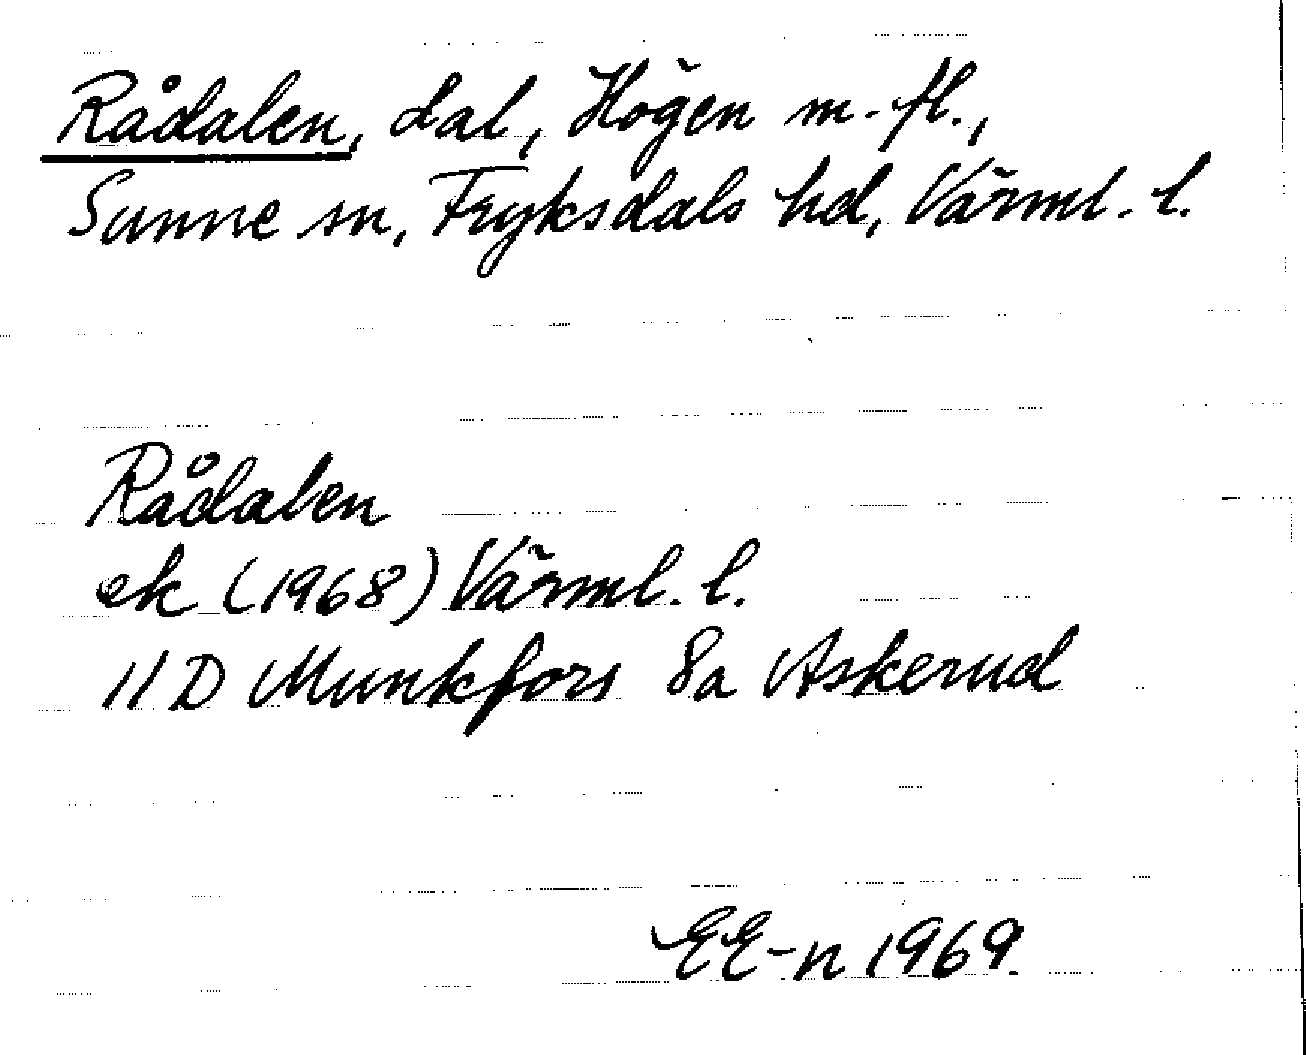 Rådalen, dal, Högen m. fl.,
Sunne sn, Fryksdals hd, Värml. l.
Rådalen
ek (1968) Värml. l.
11 D Munkfors 8a Askerud
EE-n 1969.